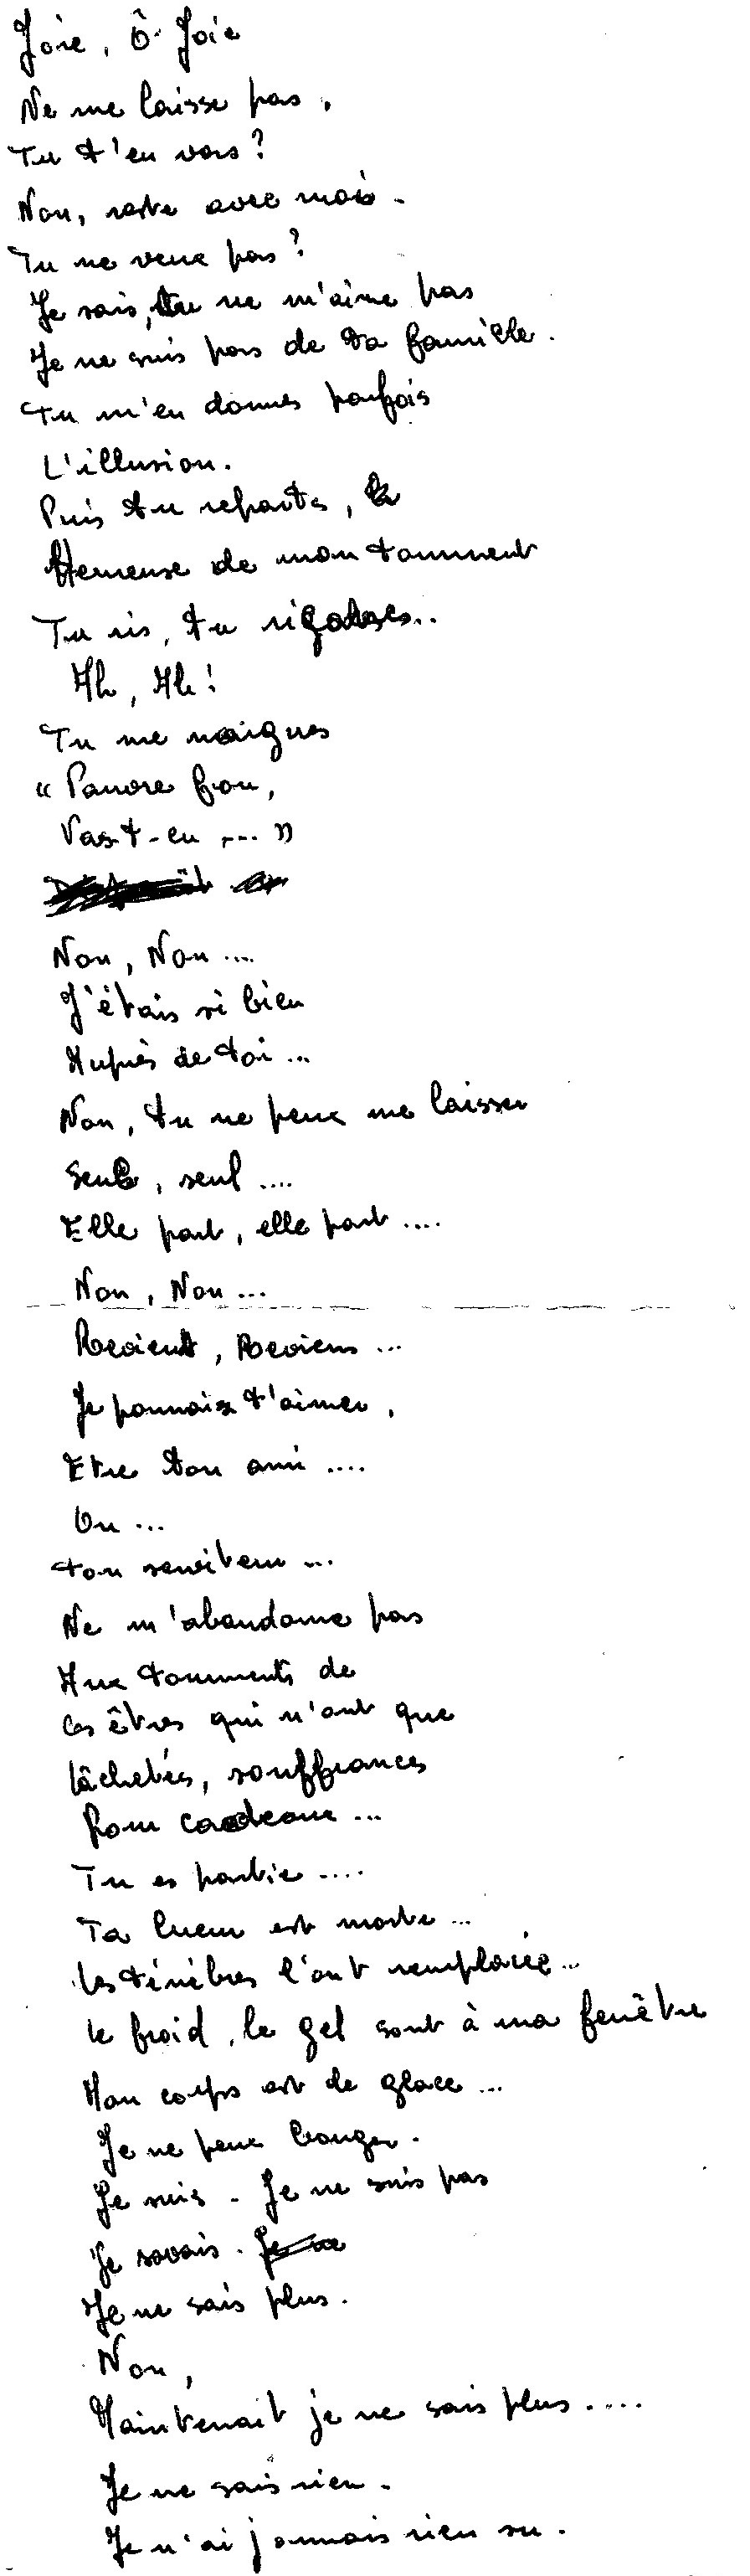 Joie, ô Joie
Ne me laisse pas,
Tu t'en vas?
Non, reste avec moi.
Tu ne veux pas?
Je sais, tu ne m'aime pas
Je ne suis pas de ta famille.
Tu m'en donnes parfois
L'illusion.
Puis tu repartes,
Heureuse de mon tourment
Tu ris, tu rigoles..
Ah, Ah!
Tu me nargues
« Pauvre fou,
Vas-t-en .... »
Non, Non ....
J'étais si bien
Auprès de toi ...
Non, tu ne peux me laisser
Seul, seul ....
Elle part, elle part ....
Non, Non ...
Reviens, Reviens ...
Je pourrais t'aimer,
Etre ton ami ....
Ou ...
ton serviteur ...
Ne m'abandonne pas
Aux tourments de
ces êtres qui n'ont que
lâchetés, souffrances
Pour cadeaux ...
Tu es partie ....
Ta lueur est morte ...
Les ténèbres l'ont remplacée ...
Le froid, le gel sont à ma fenêtre
Mon corps est de glace ...
Je ne peux bouger.
Je suis. Je ne suis pas
Je savais. Je ne
Je ne sais plus.
Non,
Maintenait je ne sais plus ....
Je ne sais rien.
Je n'ai jamais rien su.